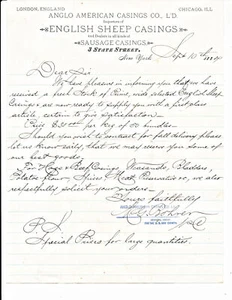 LONDON, ENGLAND
CHICAGO, ILL.
ANGLO AMERICAN CASINGS CO., L'D.
Importers of
ENGLISH SHEEP CASINGS
and Dealers in all kinds of
SAUSAGE CASINGS.
3 STATE STREET.
New York Sept 10th
Dear Sir
We have pleasure in informing you that we have
received a fresh stock of wide selected English Sheep
Casings & are now ready to supply you with a first class
article, certain to give satisfaction.
Price per keg of 50 bundles.
Should you wish to contract for fall delivery please
let us know early, that we may reserve you some of
our best goods.
For Hogs & Beef Casings, Weasands, Bladders,
Potatoe flour, Spices & Meat Preservatives &c, we also
respectfully solicit your orders.
Yours faithfully
P.S.
Special Prices for large quantities.